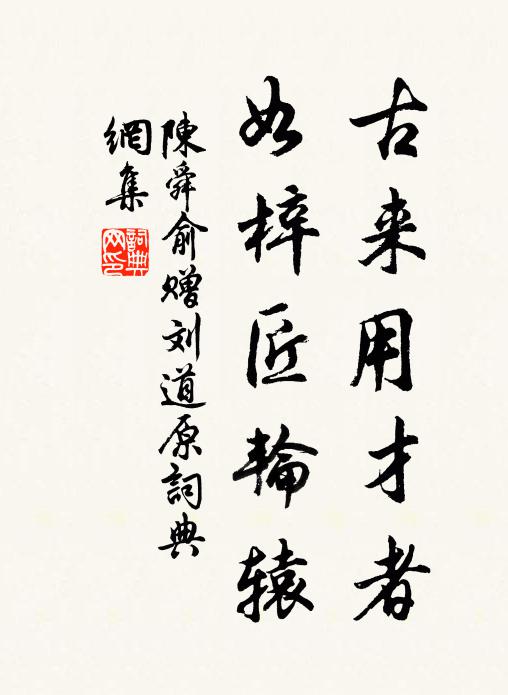 古来用才者
如梓匠輪辕
陳舜俞赠刘道原詞典
網集
詞典
网印